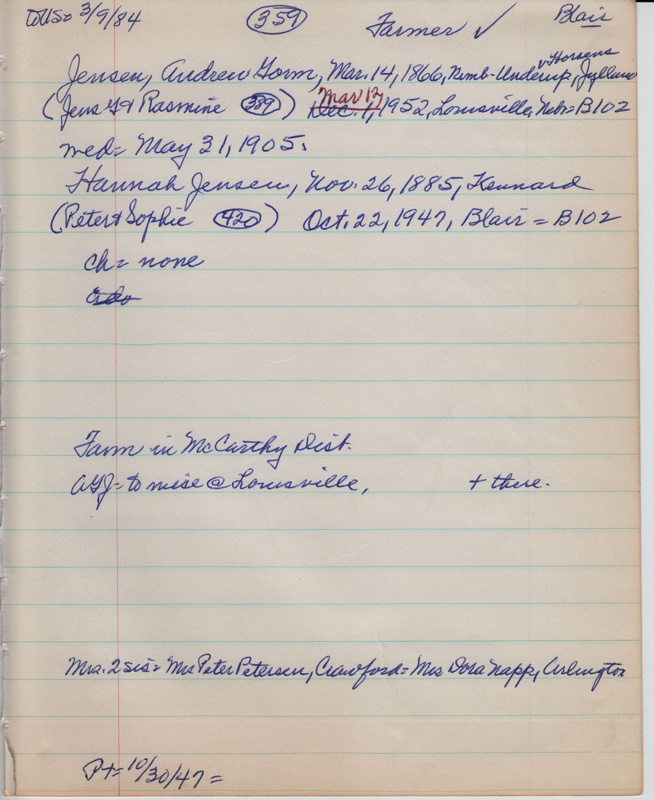 toUS= 3/9/84 359 Farmer ✓ Blair
Jensen, Andrew Gorm, Mar. 14, 1866, Nimb-Underup, v Horsens, Jylland
(Jens G + Rasmine 389) Dec. 1, Mar 12, 1952, Louisville, Nebr = B102
med= May 31, 1905.
Hannah Jensen, Nov. 26, 1885, Kennard
(Peter + Sophie 420) Oct. 22, 1947, Blair = B102
ch= none
Farm in McCarthy Dist.
AGJ= to niese @ Louisville, + there.
Mrs. 2 sis= Mrs Peter Petersen, Crawford= Mrs Dora Napp, Arlington
Pt= 10/30/47 =